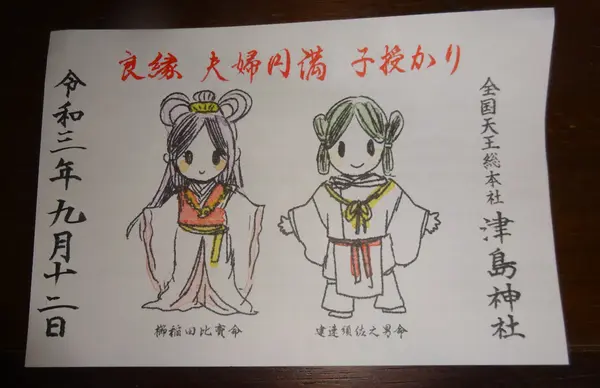 良縁 夫婦円満 子授かり
全国天王総本社 津島神社
建速須佐之男命
櫛稲田比売命
令和三年九月十二日